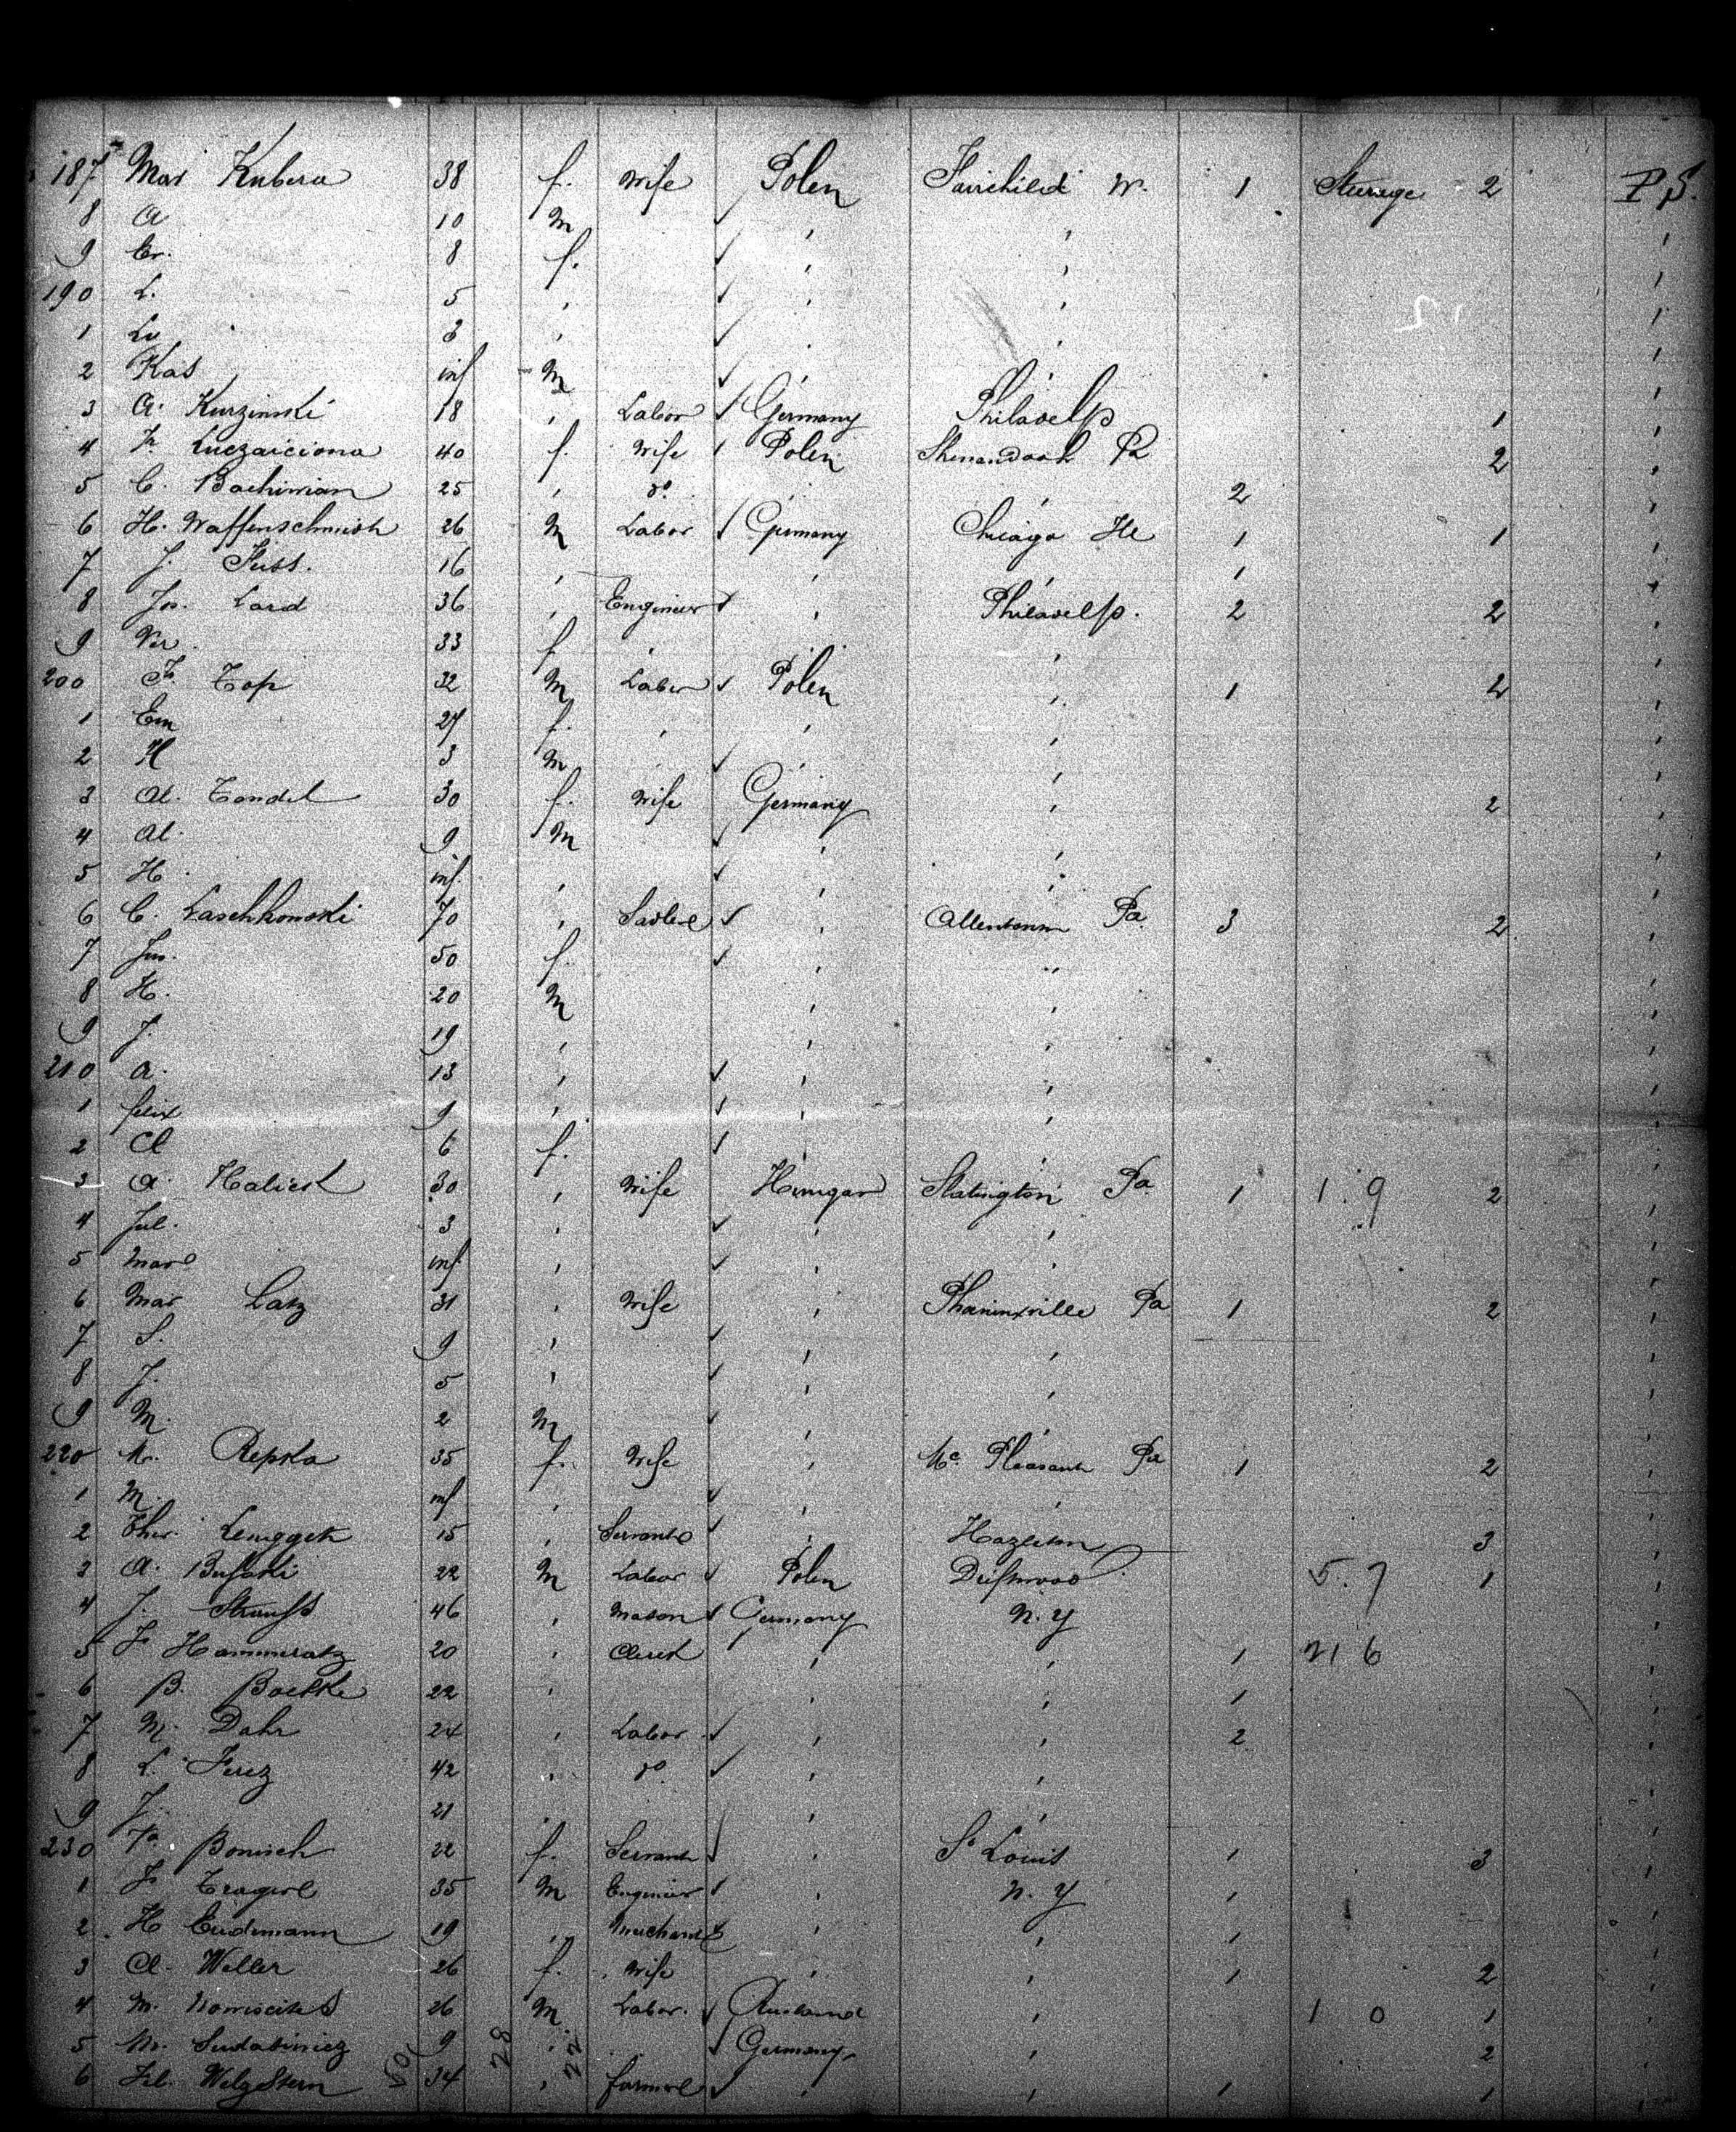 187 Mar Kubera 38 f. Wife Polen Fairchild W. 1 Steerage 2 P S.
8 A 10 M
9 Er. 8 f.
190 L. 5
1 Lu 3
2 Kas inf M
3 A. Kurzinski 18 Labor Germany Philadelp 1
4 Fr. Luczaiciona 40 f. Wife Polen Shenandoah Pa 2
5 C. Bachinian 25 do 2
6 H. Waffenschmidt 26 M Labor Germany Chicago Ill 1 1
7 J. Fuss. 16 1
8 Jos. Lard 36 Engineer Philadelp. 2 2
9 Ver. 33 f
200 F. Top 32 M Labor Polen 1 2
1 Em 27 f.
2 H 3 M
3 Al. Tondel 30 f. Wife Germany 2
4 Al. 9 M
5 H. inf.
6 C. Laschkowski 70 Sadler Allentown Pa. 3 2
7 50 f.
8 H. 20 M
9 J. 19
210 A. 13
1 Felix 9
2 Cl 6 f.
3 A. Halick 30 Wife Hungar Slatington Pa. 1 1. 9 2
4 Jul. 3
5 Mar inf.
6 Mar Latz 31 Wife Phanixville Pa 1 2
7 S. 9
8 J. 5
9 M. 2 M
220 M. Repka 35 f. Wife Mt. Pleasant Pa 1 2
1 M. inf
2 Ther. 15 Servant Hazleton 3
3 A. Bufski 22 M Labor Polen Driftwood 5. 7 1
4 J. Strauss 46 Mason Germany N. Y
5 F Hammeratz 20 Clerk 1 216
6 B. Boelke 22 1
7 M. Dahr 24 Labor 2
8 L. Ferez 42 do
9 J. 21
230 Fr. Bonisch 22 f. Servant St Louis 1 3
1 F Tragerl 35 M Engineer N. Y 1
2 H Eudemann 19 Merchant 1
3 A. Weller 26 f. Wife 1 2
4 M. 26 M Labor. Rusland 1 0 1
5 M. 9 Germany 2
6 Fel. Welzstern 34 farmer 1 1